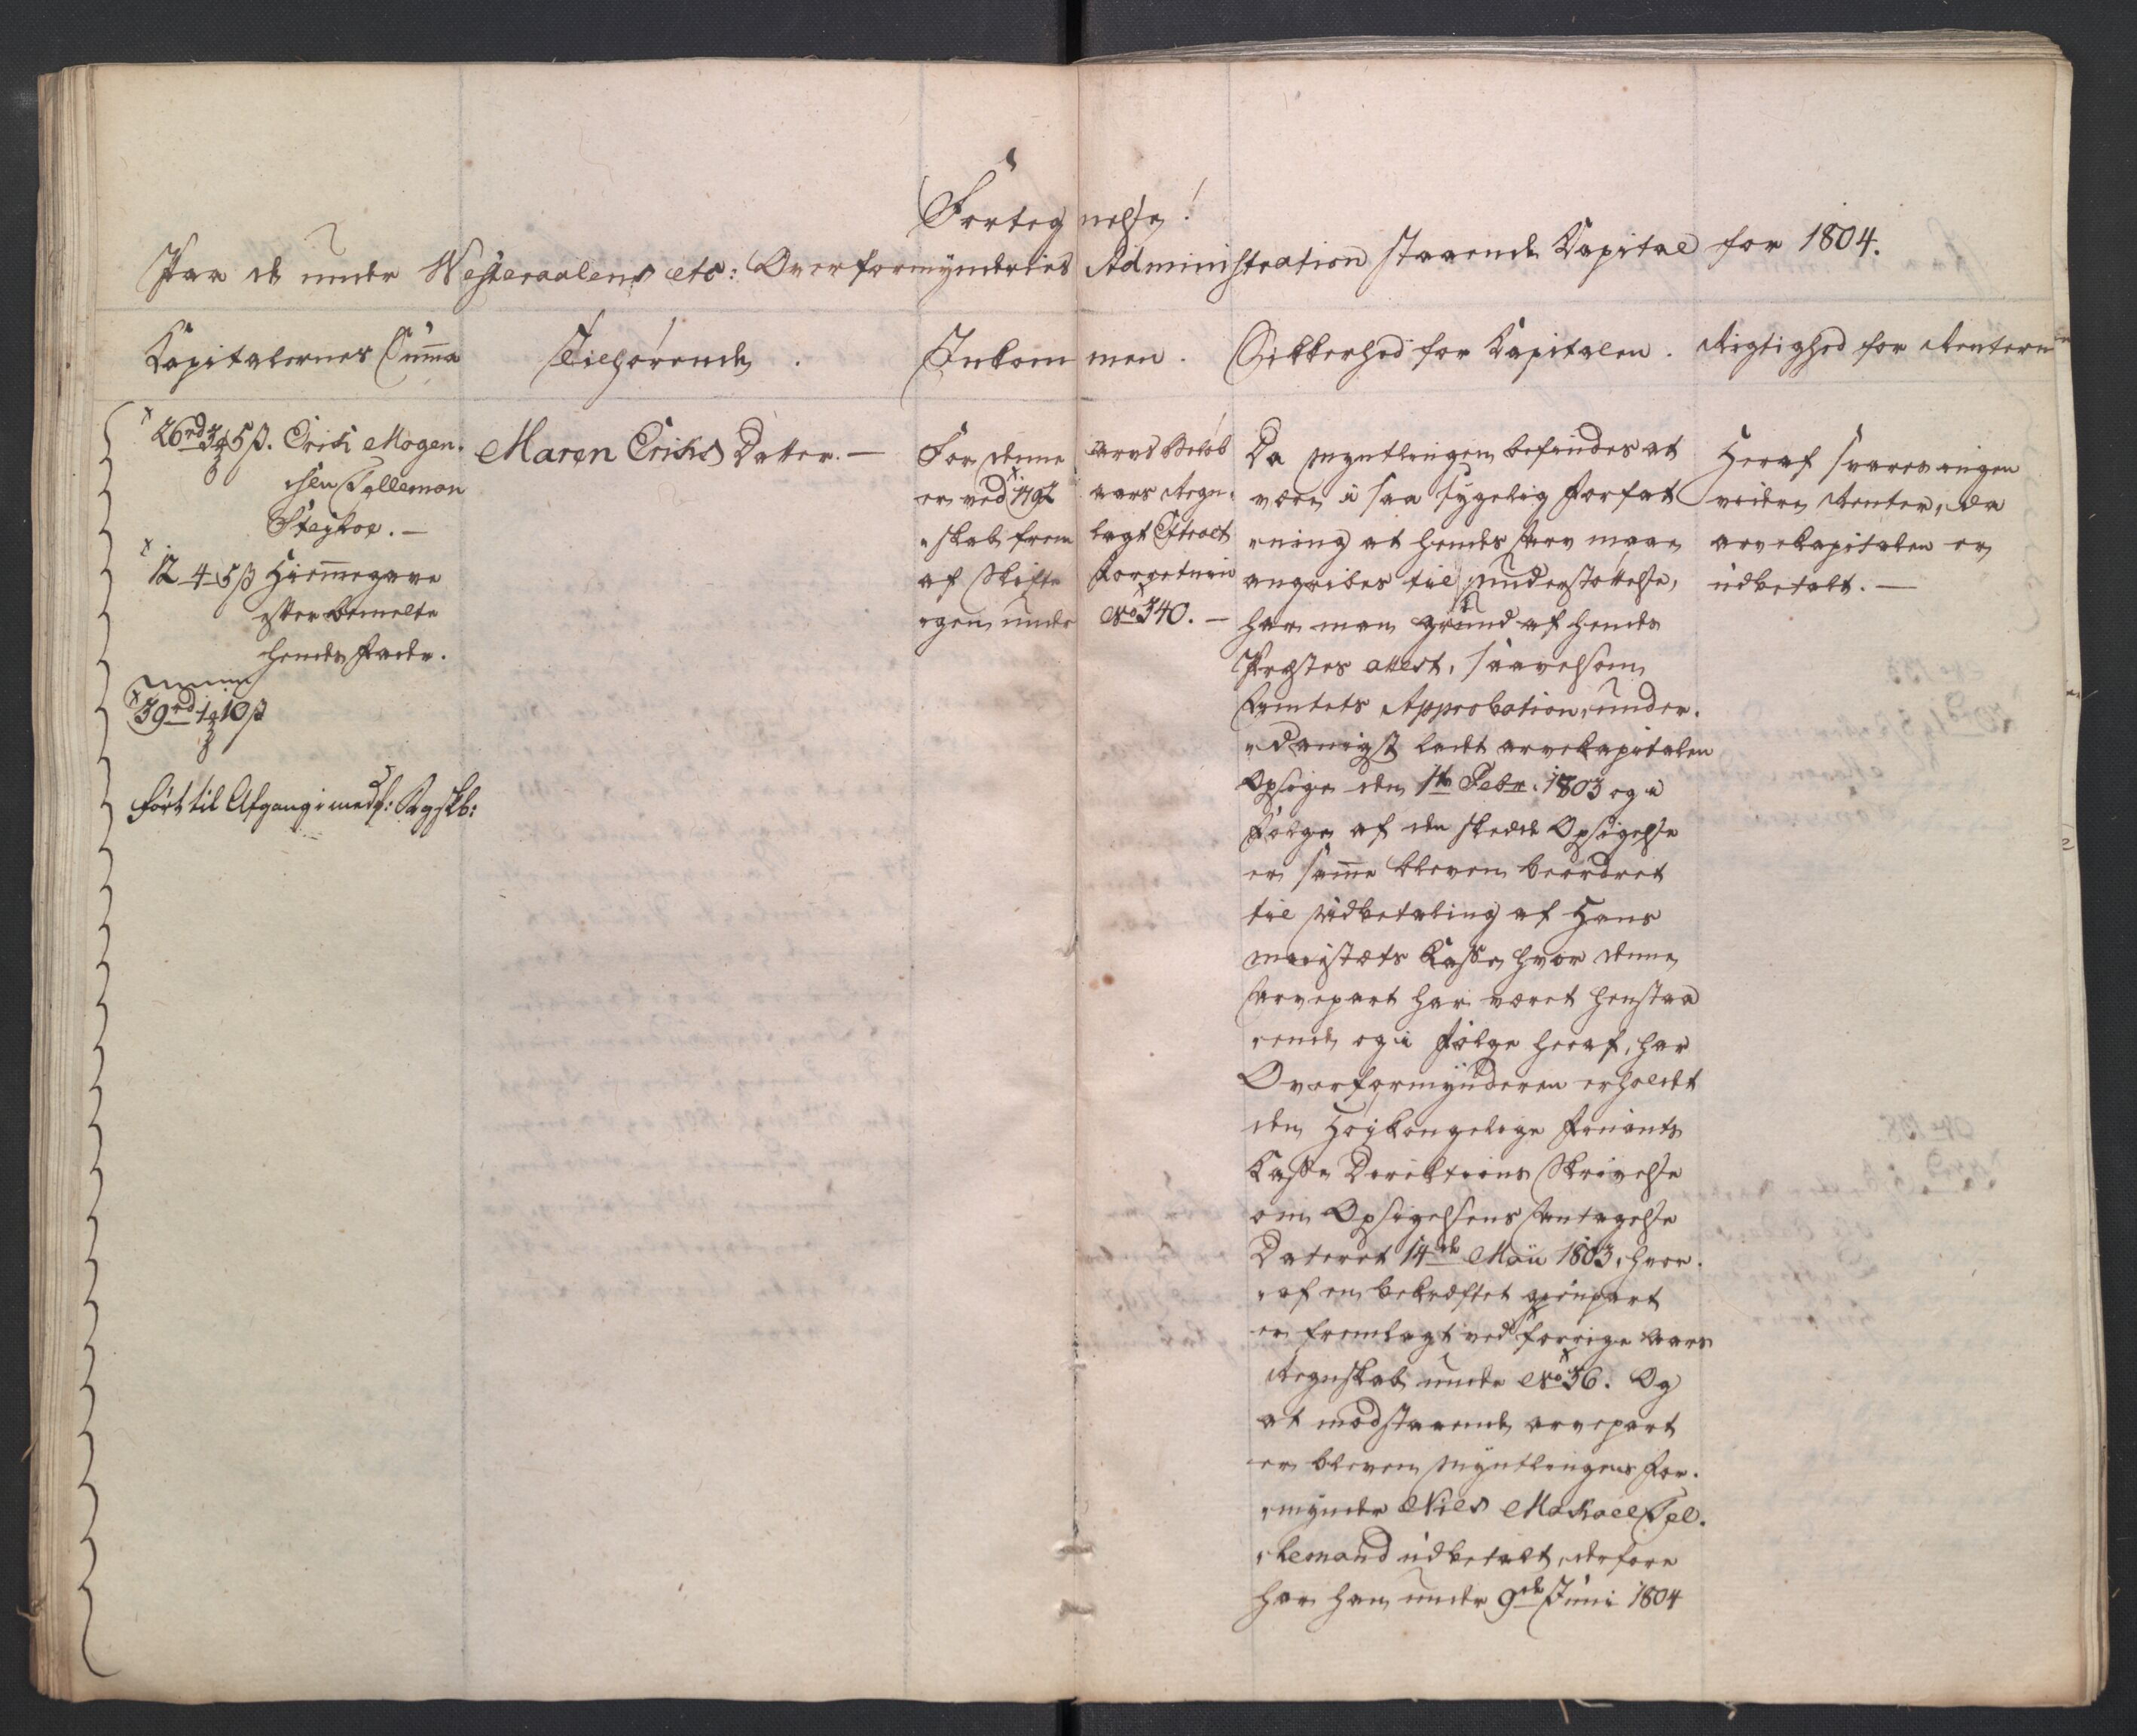 Forteg nelse!
Paa de under Westeraalens etc: Overformynderies Administration staaende Capital for 1804.
Capitalernes Summa
Tilhørende.
Indkom men.
Sikkerhed for Capitalen.
Rigtighed for Renterne
26rd 3 ß. Erich Mogen.
sen Tellemon
Steyloe. —
12 - 4 - 5 ß Hiemmegave
efter bemelte
hendes Fader.
39rd 1 10 ß
ført til Afgang i medf: Rgskb:
Maren Erichs Datter. —
For denne arvs Beløb
er ved 1792 aars Regn-
skab frem lagt Extract
af Skifte Forretnin
gen under No 340. —
Da Myntlingen befindes at
være i saa sygelig Forfat
ning at hendes Arv maae
angribes til Understøttelse,
har man grund af hendes
Præstes attest, saavelsom
Amtets Approbation, under-
danigst ladt arvekapitalen
Opsige den 1te Febr. 1803 og i
Følge af den skedde Opsigelse
er samme bleven beordret
til Udbetaling af Hans
Majestæts Kasse, hvor denne
Arvepart har været henstaa
ende, og i Følge heraf, har
Overformynderen erholdet
den Høikongelige Finants
Kasse Direktions Skrivelse
om Opsigelsens Antagelse
Dateret 14de Maii 1803, hvor-
af en bekræftet gienpart
er fremlagt ved forrige aars
Regnskab under No 36. Og
at modstaaende arvepart
er bleven Myntlingens For-
mynder Niels Mechael Tel-
lemand udbetalt, derfore
har han under 9de Juni 1804
Heraf svares ingen
videre Renter, da
arvekapitalen er
udbetalt. —